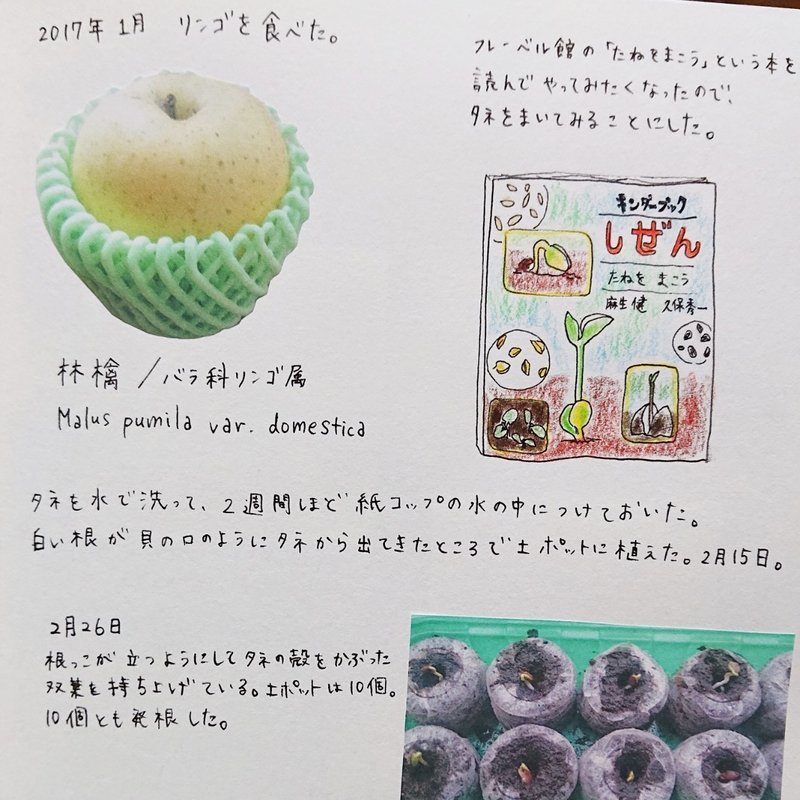 2017年 1月 リンゴを食べた。
フレーベル館の「たねをまこう」という本を
読んで やってみたくなったので、
タネをまいてみることにした。
キンダーブック
しぜん
たねを まこう
麻生健 久保秀一
林檎/バラ科リンゴ属
Malus pumila var. domestica
タネを水で洗って、2週間ほど紙コップの水の中につけておいた。
白い根が貝の口のようにタネから出てきたところで土ポットに植えた。2月15日。
2月26日
根っこが立つようにしてタネの殻をかぶった
双葉を持ち上げている。土ポットは10個。
10個とも発根した。